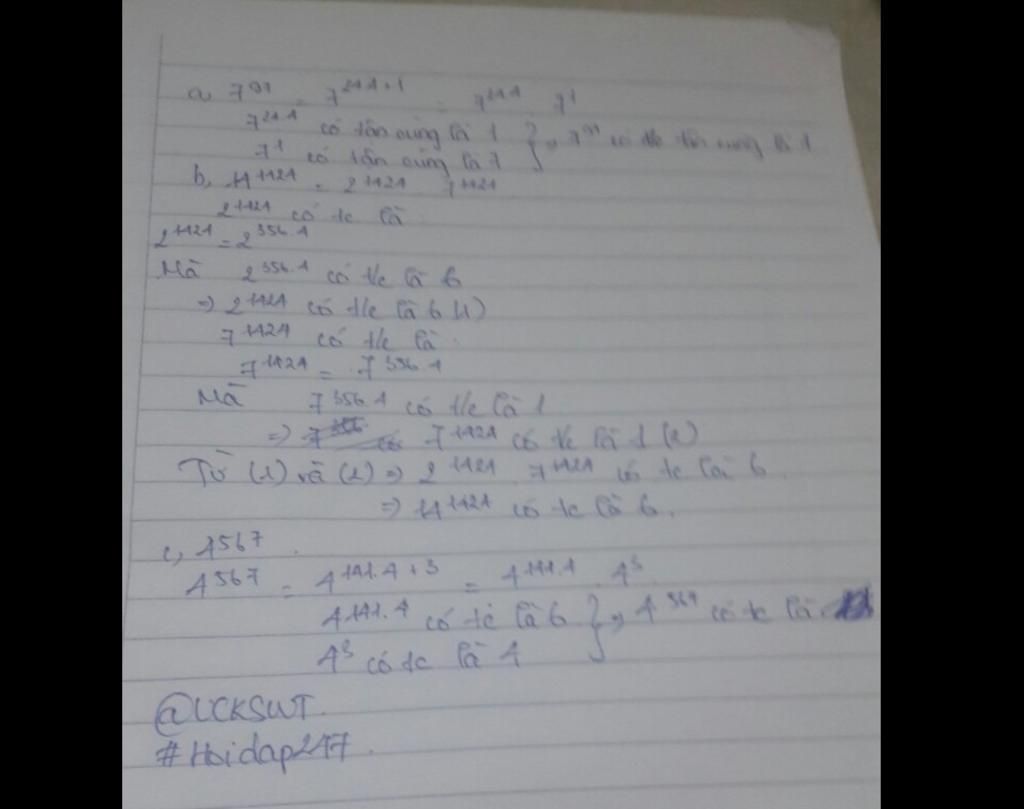 a, 7^97 = 7^24.4+1 = 7^24.4 . 7^1
7^24.4 có tận cùng là 1
7^1 có tận cùng là 7 } => 7^97 có tận cùng là 7
b, 14^1424 = 2^1424 . 7^1424
2^1424 có tc là
2^1424 = 2^356.4
Mà 2^356.4 có t/c là 6
=> 2^1424 có t/c là 6 (1)
7^1424 có t/c là
7^1424 = 7^356.4
Mà 7^356.4 có t/c là 1
=> 7^1424 có t/c là 1 (2)
Từ (1) và (2) => 2^1424 . 7^1424 có tc là 6
=> 14^1424 có tc là 6.
c, 4^567
4^567 = 4^141.4+3 = 4^141.4 . 4^3
4^141.4 có tc là 6
4^3 có tc là 4 } => 4^567 có tc là
@UCKSWT.
#Hoidap247.